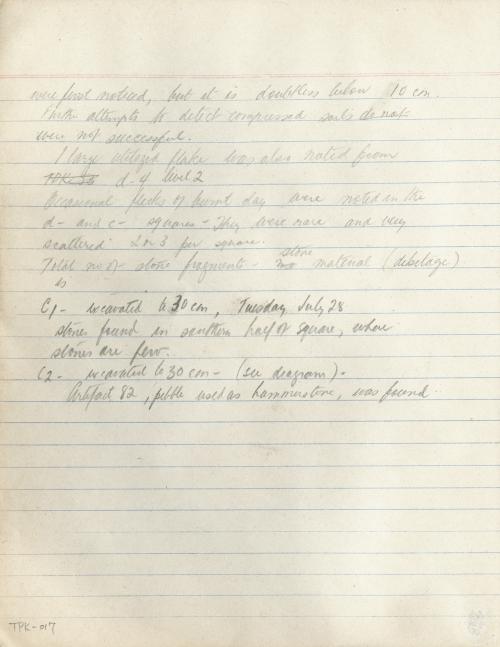 were first noticed, but it is doubtless below 10 cm.
Further attempts to detect compressed soils do not
were not successful.
1 large utilized flake was also noted from
d-4 level 2
Occasional flecks of burnt clay were noted in the
d- and c- squares - They were rare and very
scattered 2 or 3 per square.
stone
Total no of stone fragments - material (debitage)
is
C1 - excavated to 30 cm, Tuesday July 28
stones found in southern half of square, where
stones are few.
C2 - excavated to 30 cm - (see diagram).
Artifact 82, pebble used as hammerstone, was found.
TPK-017